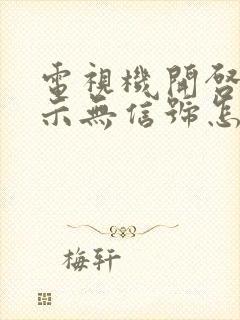 電視機開啓
示無信號怎
梅軒